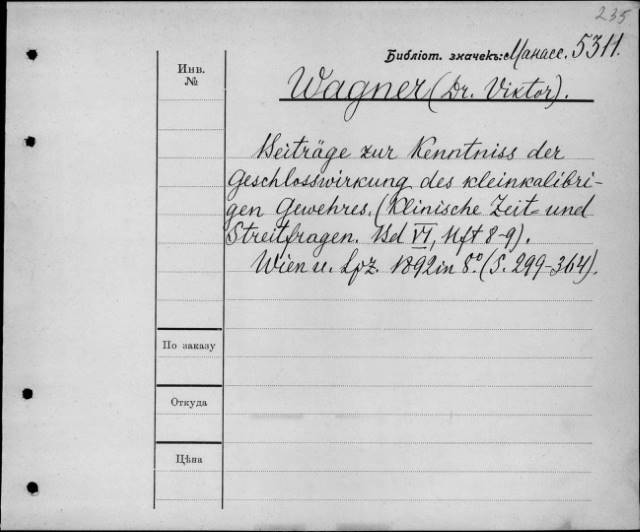 235
Библіот. значекъ: Манасс. 5311.
Инв. №
Wagner (Dr. Viktor).
Beiträge zur Kenntniss der
Geschlosswirkung des kleinkalibri-
gen Gewehres. (Klinische Zeit- und
Streitfragen. Bd VI, Hft 8-9).
Wien u. Lpz. 1892 in 8.º (S. 299-364).
По заказу
Откуда
Цѣна